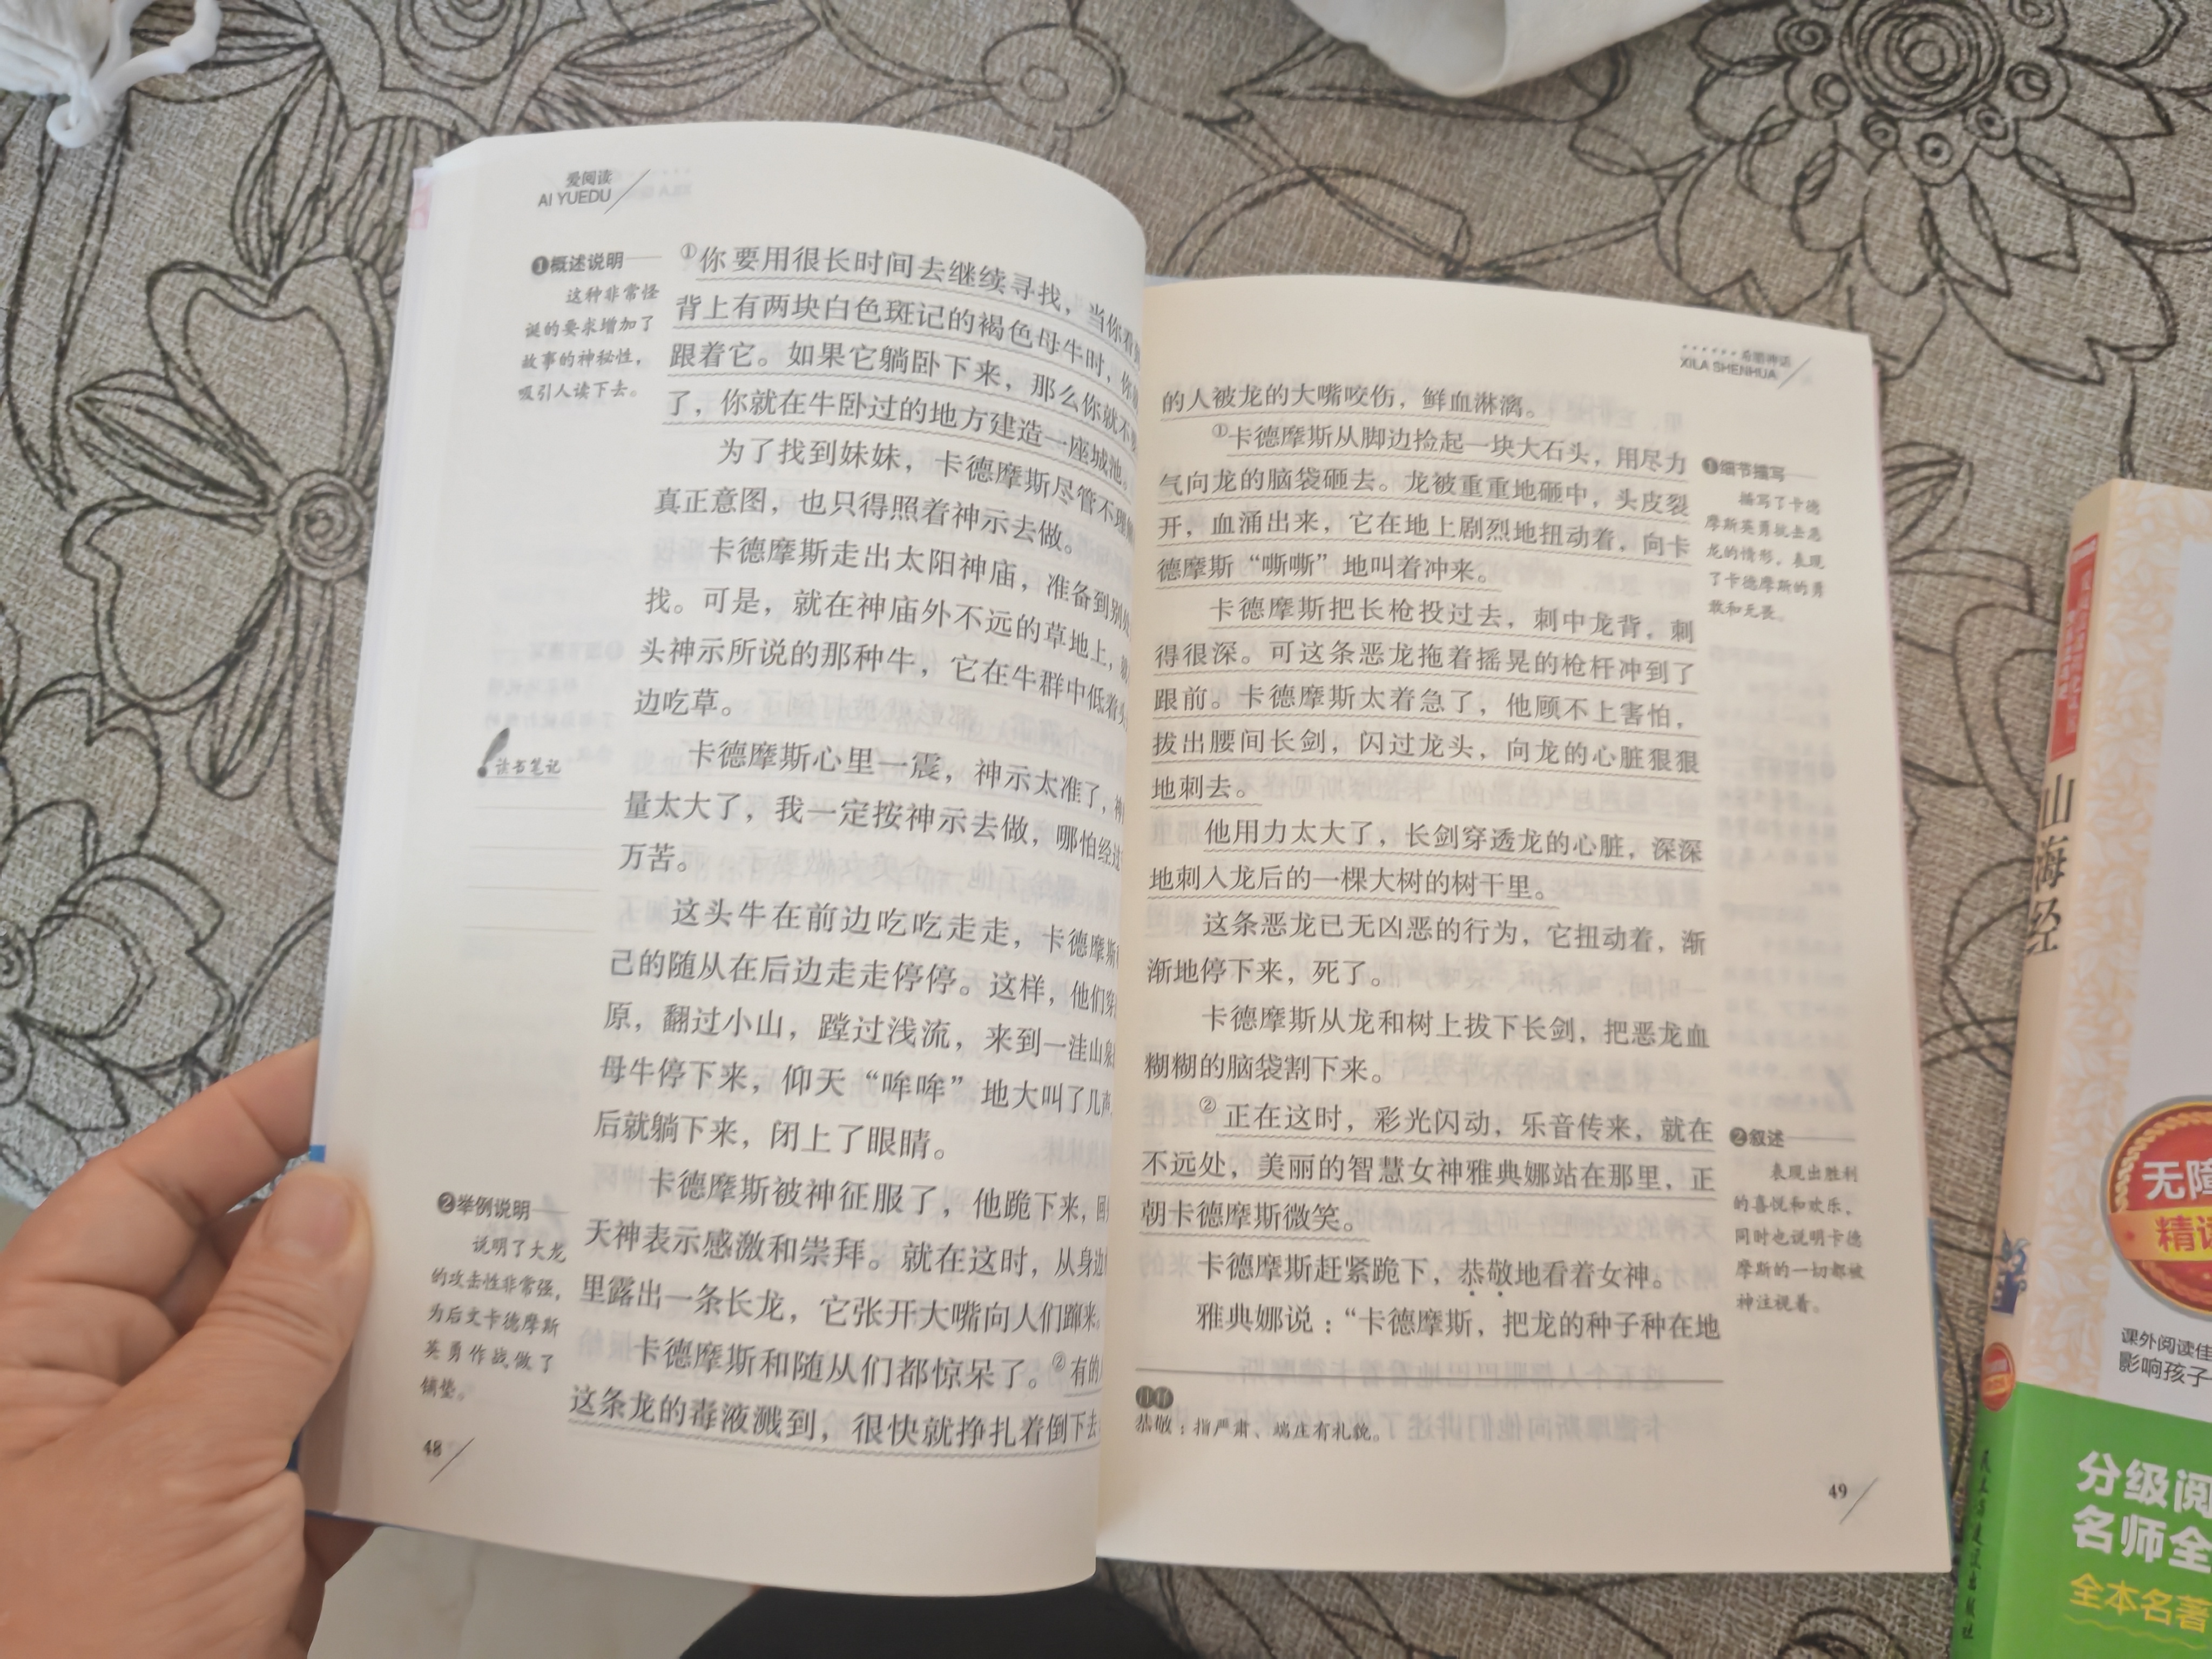 爱阅读
AI YUEDU
❶概述说明
这种非常怪
诞的要求增加了
故事的神秘性，
吸引人读下去。
①你要用很长时间去继续寻找，当你看
背上有两块白色斑记的褐色母牛时，你
跟着它。如果它躺卧下来，那么你就不
了，你就在牛卧过的地方建造一座城池。
为了找到妹妹，卡德摩斯尽管不理解
真正意图，也只得照着神示去做。
卡德摩斯走出太阳神庙，准备到别处
找。可是，就在神庙外不远的草地上，
头神示所说的那种牛，它在牛群中低着
边吃草。
读书笔记
卡德摩斯心里一震，神示太准了，
量太大了，我一定按神示去做，哪怕经
万苦。
这头牛在前边吃吃走走，卡德摩斯
己的随从在后边走走停停。这样，他们穿
原，翻过小山，蹚过浅流，来到一洼山
母牛停下来，仰天“哞哞”地大叫了几声
后就躺下来，闭上了眼睛。
❷举例说明
说明了大龙
的攻击性非常强，
为后文卡德摩斯
英勇作战做了
铺垫。
卡德摩斯被神征服了，他跪下来，
天神表示感激和崇拜。就在这时，从身边
里露出一条长龙，它张开大嘴向人们蹿来。
卡德摩斯和随从们都惊呆了。②有的
这条龙的毒液溅到，很快就挣扎着倒下去
48
希腊神话
XILA SHENHUA
的人被龙的大嘴咬伤，鲜血淋漓。
①卡德摩斯从脚边捡起一块大石头，用尽力
气向龙的脑袋砸去。龙被重重地砸中，头皮裂
开，血涌出来，它在地上剧烈地扭动着，向卡
德摩斯“嘶嘶”地叫着冲来。
❶细节描写
描写了卡德
摩斯英勇抗击恶
龙的情形，表现
了卡德摩斯的勇
敢和无畏。
卡德摩斯把长枪投过去，刺中龙背，刺
得很深。可这条恶龙拖着摇晃的枪杆冲到了
跟前。卡德摩斯太着急了，他顾不上害怕，
拔出腰间长剑，闪过龙头，向龙的心脏狠狠
地刺去。
他用力太大了，长剑穿透龙的心脏，深深
地刺入龙后的一棵大树的树干里。
这条恶龙已无凶恶的行为，它扭动着，渐
渐地停下来，死了。
卡德摩斯从龙和树上拔下长剑，把恶龙血
糊糊的脑袋割下来。
②正在这时，彩光闪动，乐音传来，就在
不远处，美丽的智慧女神雅典娜站在那里，正
朝卡德摩斯微笑。
❷叙述
表现出胜利
的喜悦和欢乐，
同时也说明卡德
摩斯的一切都被
神注视着。
卡德摩斯赶紧跪下，恭敬地看着女神。
雅典娜说：“卡德摩斯，把龙的种子种在地
恭敬：指严肃、端庄有礼貌。
49
山海经
无障
精读
课外阅读佳
影响孩子
分级阅
名师全
全本名著